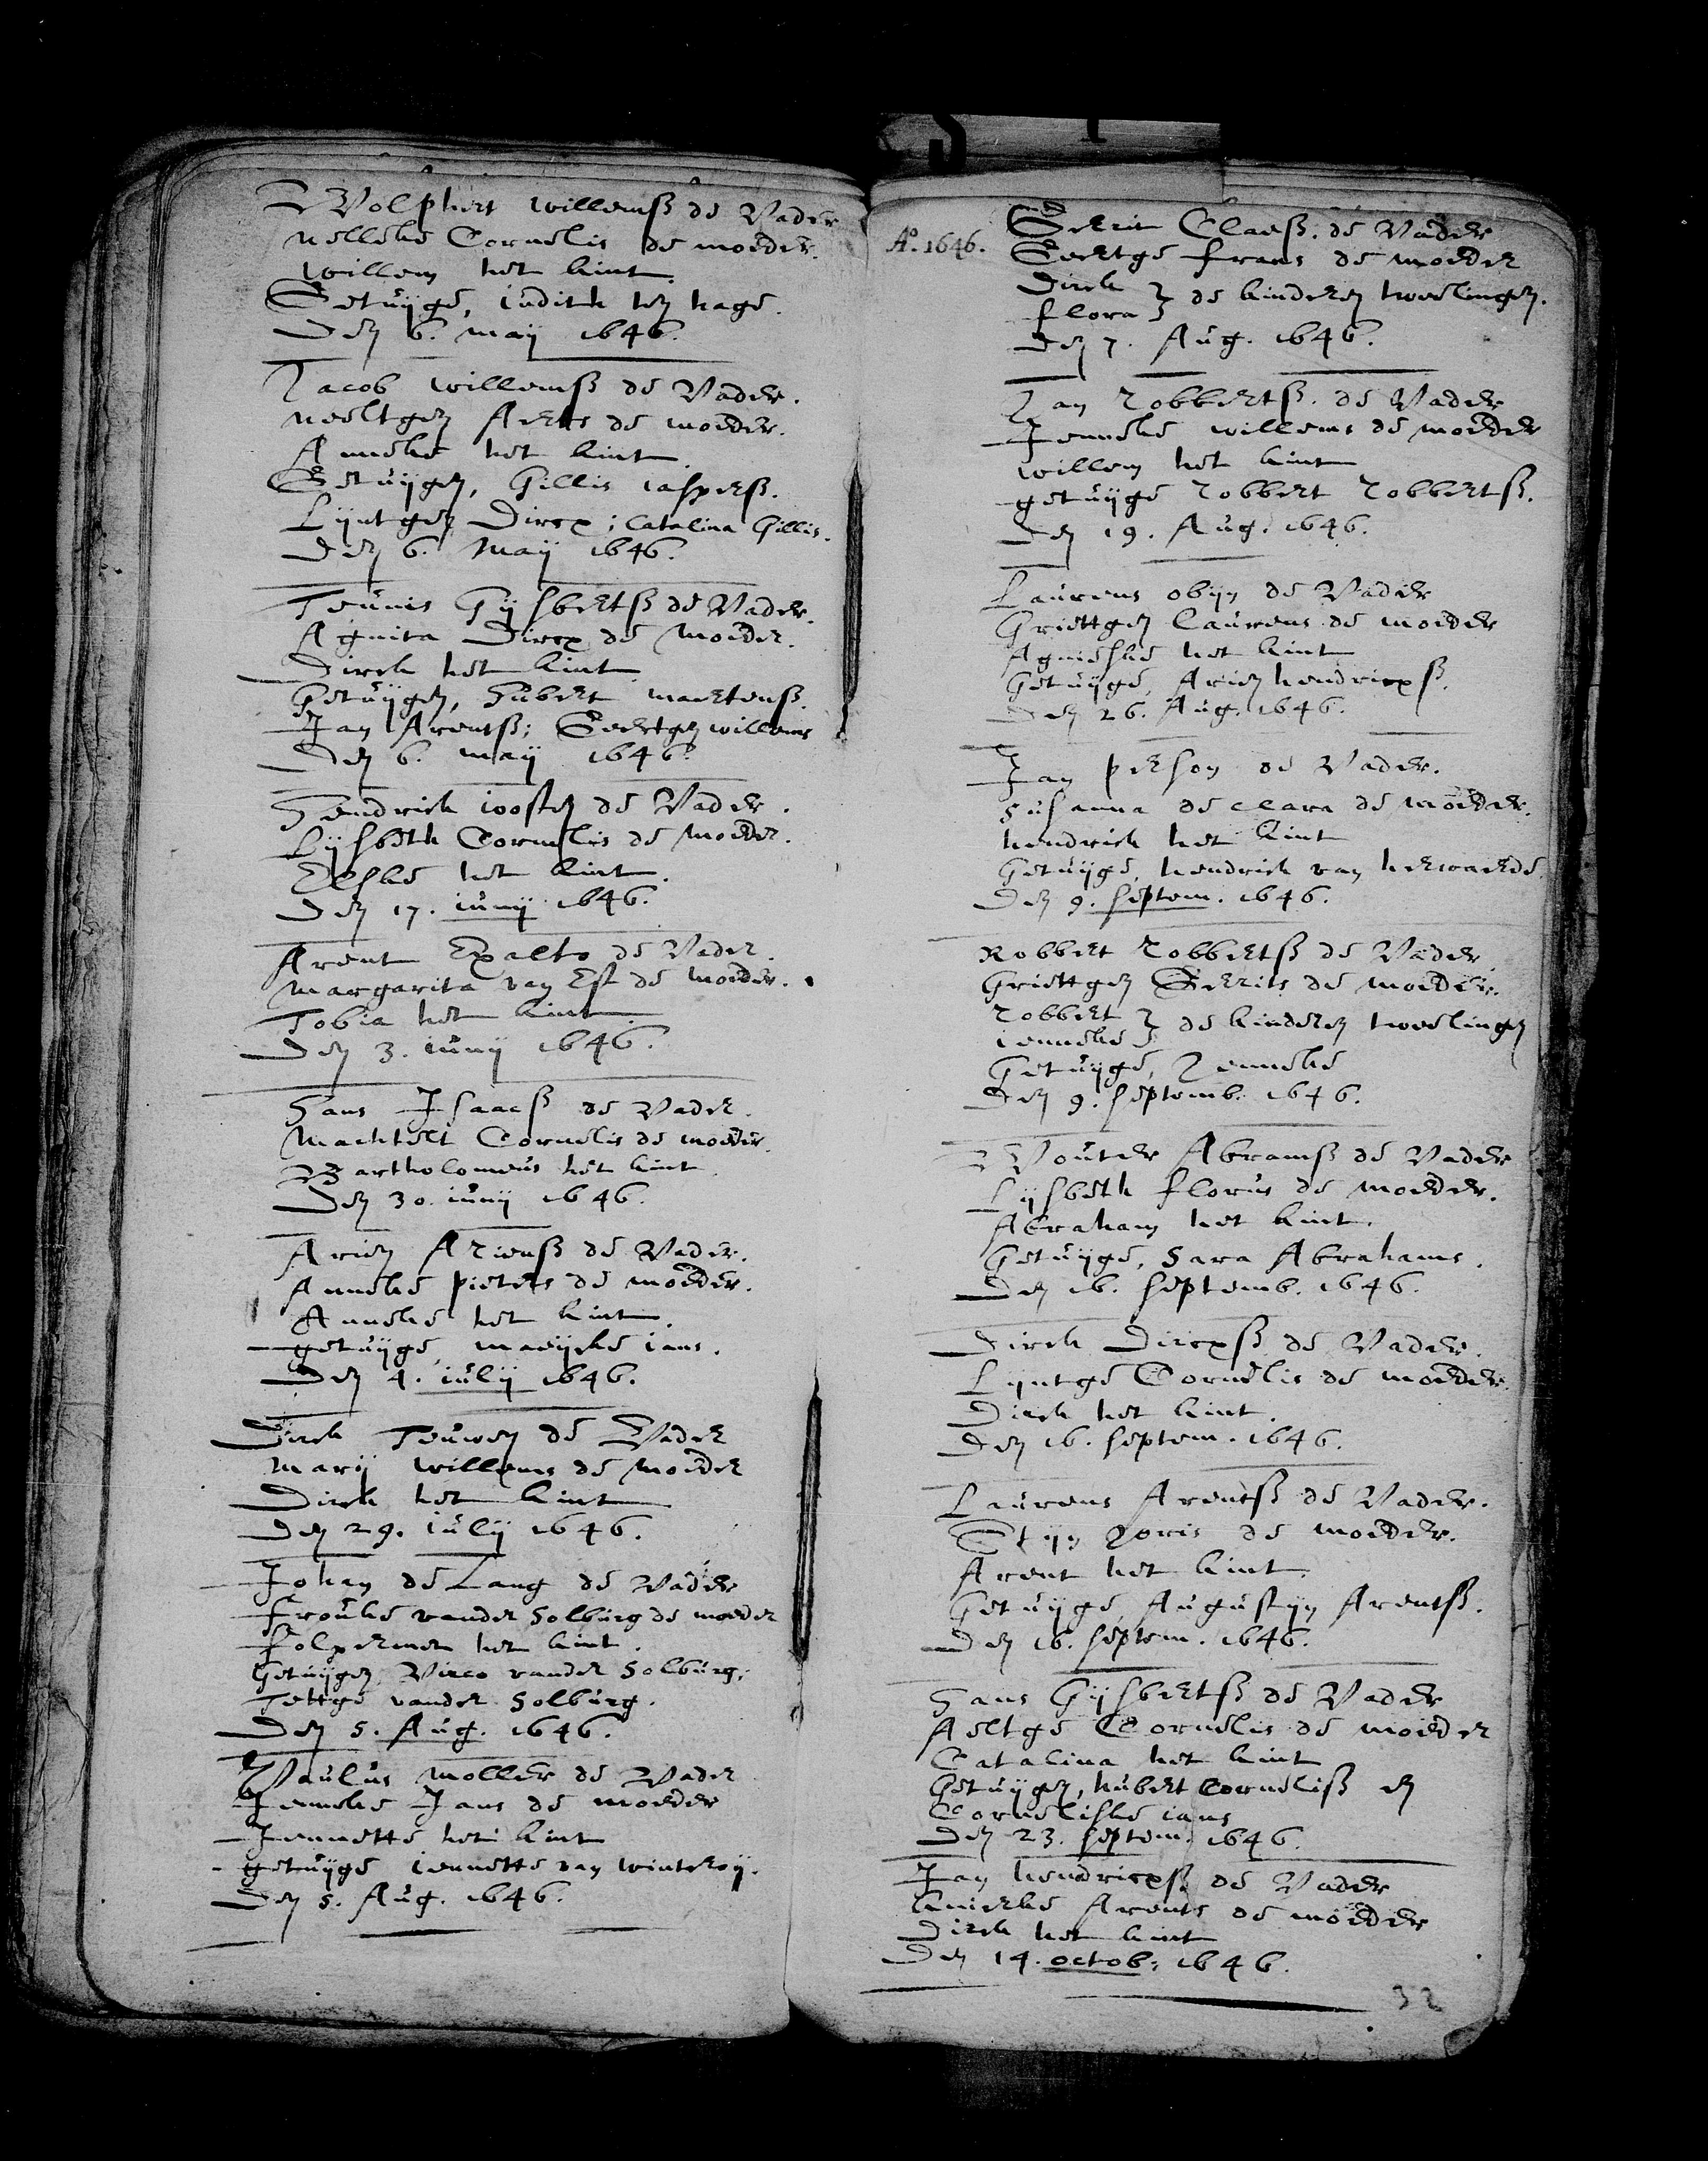 Wolphert willemsß de Vader
Nelleke Cornelis de moeder.
Willem het kint
Getuijge, Judith ten hage.
Den 6. may 1646.
Jacob willemsß de Vader.
Neeltgen Aerts de moeder.
Anneke het kint
Getuijgen, Gillis Jasperß.
Lijntgen Dircx; Catalina Gillis.
Den 6. Maij 1646.
Teunis Gijsbertsß de Vader.
Agnita Dircx de Moeder.
Dirck het kint
Getuijgen, Hubert maertensß.
Jan Arentsß; Geertgen willems
Den 6. maij 1646.
Hendrick Joosten de Vader.
Lijsbeth Cornelis de Moeder.
Elske het kint.
Den 17. iunij 1646.
Arent Exalto de Vader.
Margarita van Est de Moeder.
Tobia het kint.
Den 3. iunij 1646.
Hans Isaacß de Vader.
Machtelt Cornelis de moeder.
Bartholomeus het kint.
Den 30. iunij 1646.
Arien Ariensß de Vader.
Anneke pieters de moeder.
Anneke het kint.
getuijge, maeijcke ians.
Den 4. iulij 1646.
Dirck Teuwen de Vader
Marij willems de Moeder
Dirck het kint
Den 29. iulij 1646.
Johan de Lang de Vader
Frouke vander Solburg de moeder
het kint.
Getuijgen, Virco vander Solburg;
Tettge vander Solburg.
Den 5. Aug. 1646.
Paulus Moller de Vader
Jenneke Jans de moeder
Jennette het kint
getuijge iennette van winteroij.
Den 5. Aug. 1646.
Ao. 1646.
Gerrit Claesß. de Vader
Geertge frans de moeder
Dirck
flora } de kinderen tweelingen.
Den 7. Aug. 1646.
Jan Robbertsß. de Vader
Jenneke willems de moeder
Willem het kint
getuijge Robbert Robbertsß.
Den 19. Aug. 1646.
Laurens obijn de Vader
Griettgen Laurens de moeder
Agnieske het kint
Getuijge, Arien hendricxß.
Den 26. Aug. 1646.
Jan person de Vader.
Susanna de clara de moeder.
hendrick het kint
Getuijge, hendrick van herwaerde.
Den 9. septem. 1646.
Robbert Robbertsß de Vader
Griettgen Gerrits de moeder.
Robbert
ienneke } de kinderen tweelingen
Getuijge, Jenneke
Den 9. septemb. 1646.
Wouter Abramsß de Vader
Lijsbeth florus de moeder.
Abraham het kint.
Getuijge, Sara Abrahams.
Den 16. septemb. 1646.
Dirck Dircxß de Vader.
Lijntge Cornelis de moeder.
Dirck het kint.
Den 16. septem. 1646.
Laurens Arentsß de Vader.
Stijn Joris de moeder.
Arent het kint.
Getuijge, Augustijn Arentsß.
Den 16. septem. 1646.
Hans Gijsbertsß de Vader
Aeltge Cornelis de moeder
Catalina het kint
Getuijgen, hubert Cornelisß en
Corneliske ians
Den 23. septem. 1646.
Jan hendricxß de Vader
knierke Arents de moeder
Dirck het kint
Den 14. octob: 1646.
32